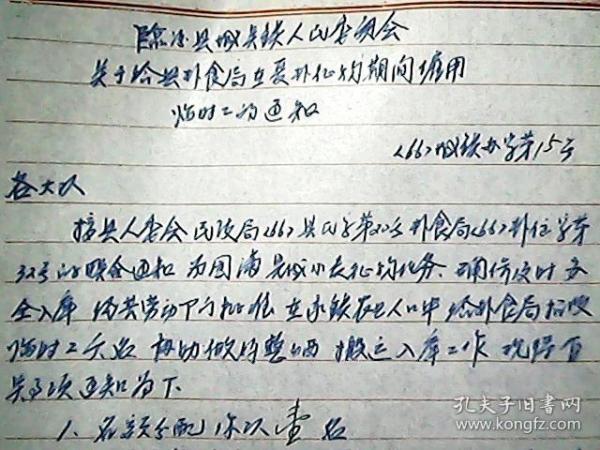 临汾县城关镇人民委员会
关于给县外食局在夏外征购期间雇用
临时工的通知
<66>城镇办字第15号
各大队
接县人委会民政局<66>县民字第20号外食局<66>外征字第
32号的联合通知 为圆满完成小麦征购任务、确保及时安
全入库 经县劳动 批准 在 镇农业人口中 给外食局招收
临时工 名 协助做好整晒 搬运入库工作 现将有
关事项通知如下
1、名额分配 你队壹名
孔夫子旧书网
www.kongfz.com